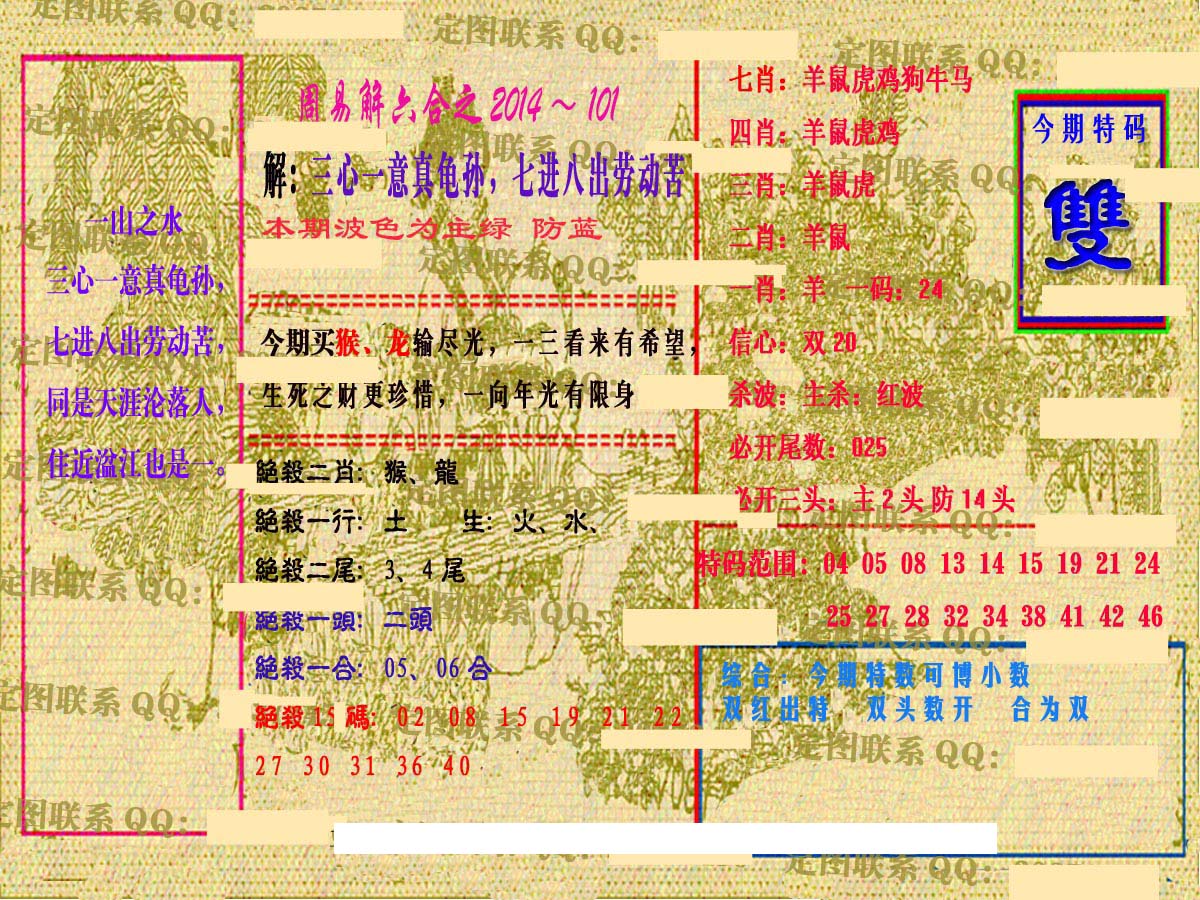 周易解六合之2014～101
一山之水
三心一意真龟孙，
七进八出劳动苦，
同是天涯沦落人，
住近湓江也是一。
解：三心一意真龟孙，七进八出劳动苦
本期波色为主绿 防蓝
今期买猴、龙输尽光，一三看来有希望，
生死之财更珍惜，一向年光有限身
絕殺二肖: 猴、龍
絕殺一行: 土 生: 火、水、
絕殺二尾: 3、4尾
絕殺一頭: 二頭
絕殺一合: 05、06合
絕殺15碼: 02 08 15 19 21 22
27 30 31 36 40
七肖：羊鼠虎鸡狗牛马
四肖：羊鼠虎鸡
三肖：羊鼠虎
二肖：羊鼠
一肖：羊 一码：24
信心：双20
杀波：主杀：红波
必开尾数：025
必开三头：主2头防14头
今期特码
雙
特码范围：04 05 08 13 14 15 19 21 24
25 27 28 32 34 38 41 42 46
综合：今期特数可博小数
双红出特 双头数开 合为双
定图联系QQ：